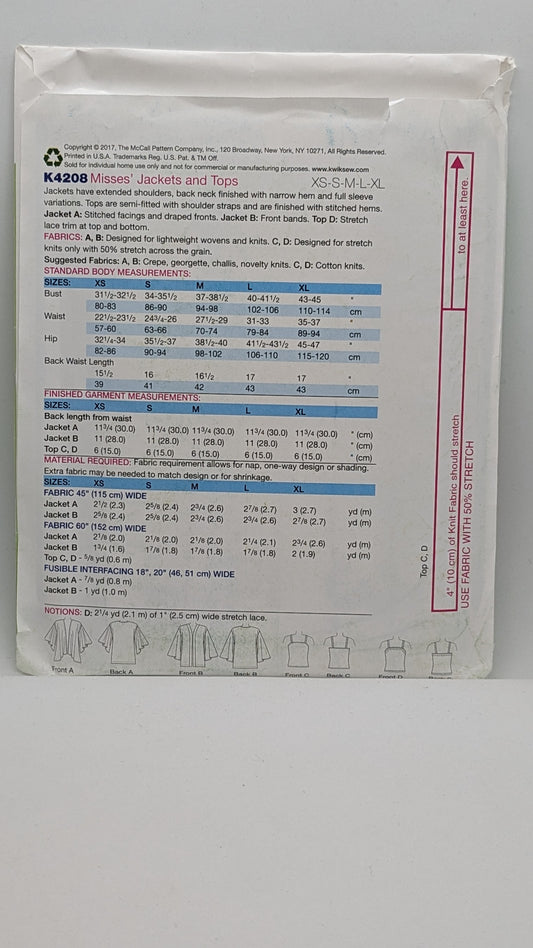 Copyright © 2017, The McCall Pattern Company, Inc., 120 Broadway, New York, NY 10271, All Rights Reserved.
Printed in U.S.A. Trademarks Reg. U.S. Pat. & TM Off.
Sold for individual home use only and not for commercial or manufacturing purposes. www.kwiksew.com
K4208 Misses' Jackets and Tops XS-S-M-L-XL
Jackets have extended shoulders, back neck finished with narrow hem and full sleeve
variations. Tops are semi-fitted with shoulder straps and are finished with stitched hems.
Jacket A: Stitched facings and draped fronts. Jacket B: Front bands. Top D: Stretch
lace trim at top and bottom.
FABRICS: A, B: Designed for lightweight wovens and knits. C, D: Designed for stretch
knits only with 50% stretch across the grain.
Suggested Fabrics: A, B: Crepe, georgette, challis, novelty knits. C, D: Cotton knits.
STANDARD BODY MEASUREMENTS:
SIZES: XS S M L XL
Bust 31 1/2-32 1/2 34-35 1/2 37-38 1/2 40-41 1/2 43-45 "
80-83 86-90 94-98 102-106 110-114 cm
Waist 22 1/2-23 1/2 24 3/4-26 27 1/2-29 31-33 35-37 "
57-60 63-66 70-74 79-84 89-94 cm
Hip 32 1/4-34 35 1/2-37 38 1/2-40 41 1/2-43 1/2 45-47 "
82-86 90-94 98-102 106-110 115-120 cm
Back Waist Length
15 1/2 16 16 1/2 17 17 "
39 41 42 43 43 cm
FINISHED GARMENT MEASUREMENTS:
SIZES: XS S M L XL
Back length from waist
Jacket A 11 3/4 (30.0) 11 3/4 (30.0) 11 3/4 (30.0) 11 3/4 (30.0) 11 3/4 (30.0) " (cm)
Jacket B 11 (28.0) 11 (28.0) 11 (28.0) 11 (28.0) 11 (28.0) " (cm)
Top C, D 6 (15.0) 6 (15.0) 6 (15.0) 6 (15.0) 6 (15.0) " (cm)
MATERIAL REQUIRED: Fabric requirement allows for nap, one-way design or shading.
Extra fabric may be needed to match design or for shrinkage.
SIZES: XS S M L XL
FABRIC 45" (115 cm) WIDE
Jacket A 2 1/2 (2.3) 2 5/8 (2.4) 2 3/4 (2.6) 2 7/8 (2.7) 3 (2.7) yd (m)
Jacket B 2 5/8 (2.4) 2 5/8 (2.4) 2 3/4 (2.6) 2 3/4 (2.6) 2 7/8 (2.7) yd (m)
FABRIC 60" (152 cm) WIDE
Jacket A 2 1/8 (2.0) 2 1/8 (2.0) 2 1/8 (2.0) 2 1/4 (2.1) 2 3/4 (2.6) yd (m)
Jacket B 1 3/4 (1.6) 1 7/8 (1.8) 1 7/8 (1.8) 1 7/8 (1.8) 2 (1.9) yd (m)
Top C, D - 5/8 yd (0.6 m)
FUSIBLE INTERFACING 18", 20" (46, 51 cm) WIDE
Jacket A - 7/8 yd (0.8 m)
Jacket B - 1 yd (1.0 m)
NOTIONS: D: 2 1/4 yd (2.1 m) of 1" (2.5 cm) wide stretch lace.
Front A Back A Front B Back B Front C Back C Front D
Top C, D
4" (10 cm) of Knit Fabric should stretch
to at least here.
USE FABRIC WITH 50% STRETCH